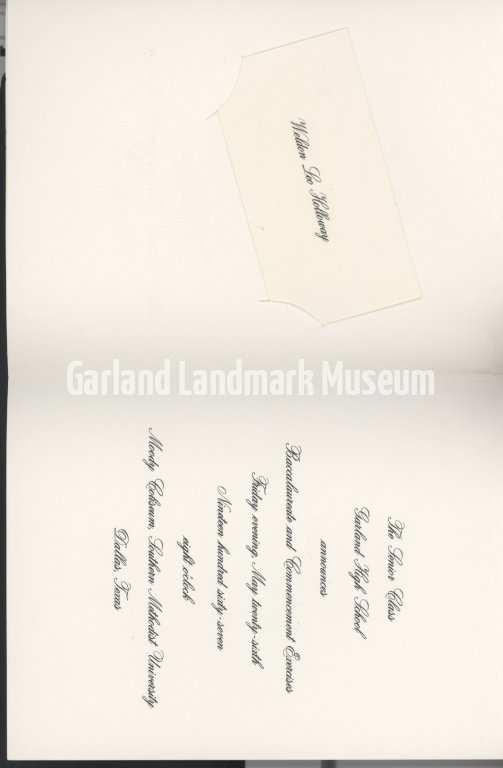 Weldon Lee Holloway
Garland Landmark Museum
The Senior Class
Garland High School
announces
Baccalaureate and Commencement Exercises
Friday evening, May twenty-sixth
Nineteen hundred sixty-seven
eight o'clock
Moody Coliseum, Southern Methodist University
Dallas, Texas